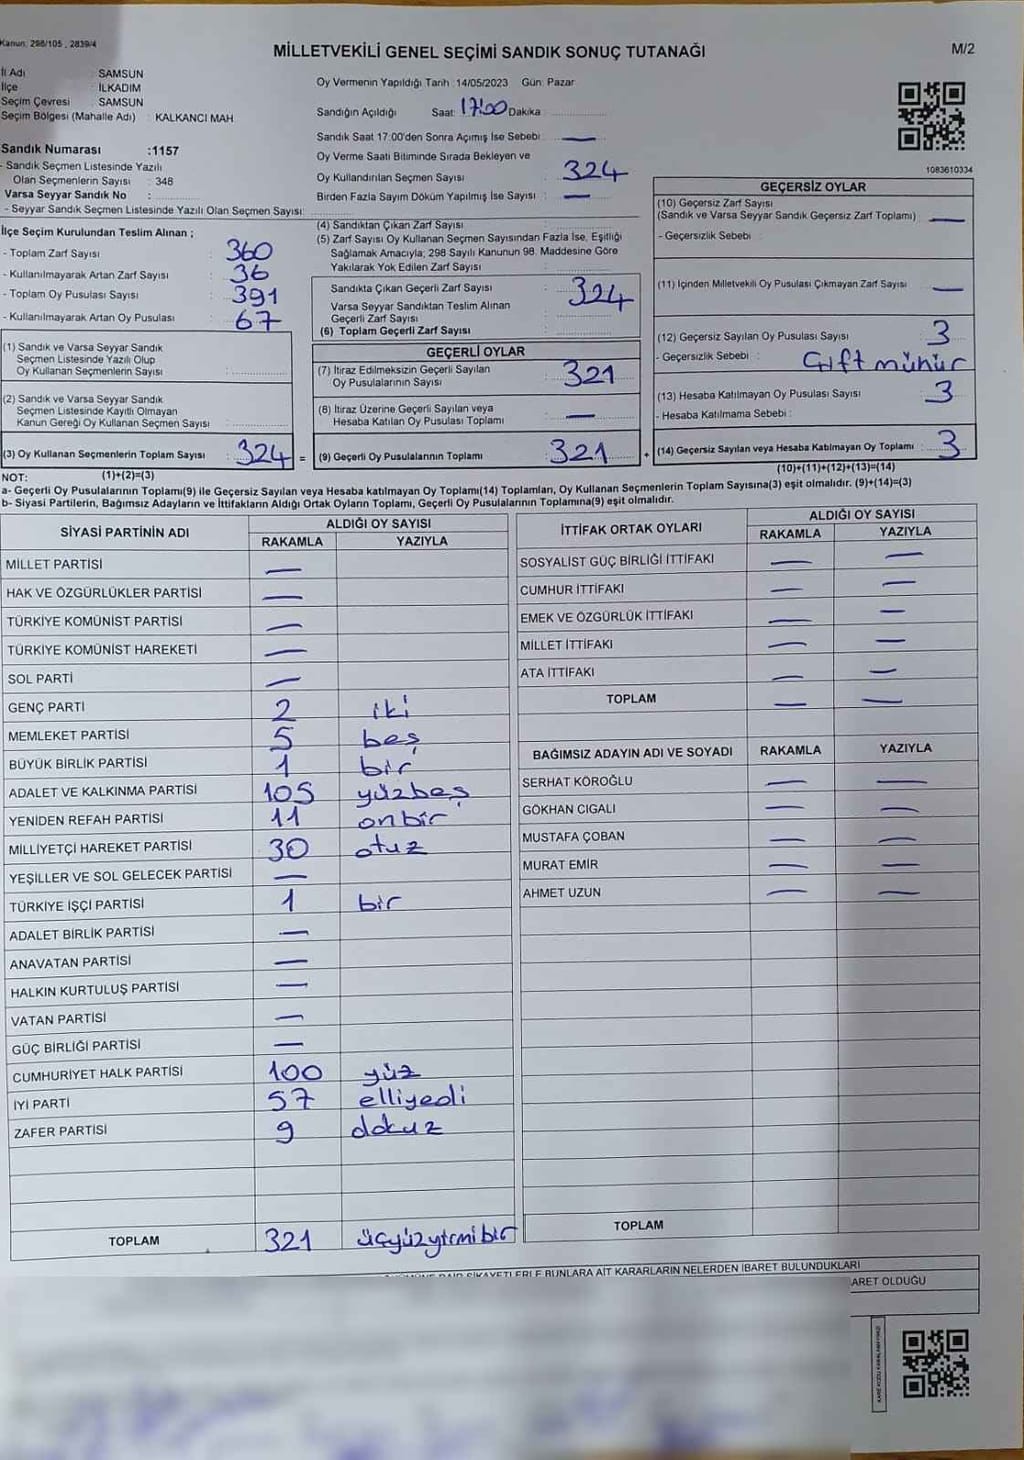 Kanun: 298/105 , 2839/4
MİLLETVEKİLİ GENEL SEÇİMİ SANDIK SONUÇ TUTANAĞI
M/2
İl Adı : SAMSUN
İlçe : İLKADIM
Seçim Çevresi : SAMSUN
Seçim Bölgesi (Mahalle Adı) : KALKANCI MAH.
Sandık Numarası :1157
- Sandık Seçmen Listesinde Yazılı
Olan Seçmenlerin Sayısı : 348
Varsa Seyyar Sandık No :
- Seyyar Sandık Seçmen Listesinde Yazılı Olan Seçmen Sayısı:
İlçe Seçim Kurulundan Teslim Alınan ;
- Toplam Zarf Sayısı : 360
- Kullanılmayarak Artan Zarf Sayısı : 36
- Toplam Oy Pusulası Sayısı : 391
- Kullanılmayarak Artan Oy Pusulası : 67
(1) Sandık ve Varsa Seyyar Sandık
Seçmen Listesinde Yazılı Olup
Oy Kullanan Seçmenlerin Sayısı :
(2) Sandık ve Varsa Seyyar Sandık
Seçmen Listesinde Kayıtlı Olmayan
Kanun Gereği Oy Kullanan Seçmen Sayısı :
(3) Oy Kullanan Seçmenlerin Toplam Sayısı : 324 =
Oy Vermenin Yapıldığı Tarih :14/05/2023 Gün: Pazar
Sandığın Açıldığı Saat: 17:00 Dakika
Sandık Saat 17:00'den Sonra Açımış İse Sebebi : —
Oy Verme Saati Bitiminde Sırada Bekleyen ve
Oy Kullandırılan Seçmen Sayısı : 324
Birden Fazla Sayım Döküm Yapılmış İse Sayısı : —
(4) Sandıktan Çıkan Zarf Sayısı
(5) Zarf Sayısı Oy Kullanan Seçmen Sayısından Fazla İse, Eşitliği
Sağlamak Amacıyla; 298 Sayılı Kanunun 98. Maddesine Göre
Yakılarak Yok Edilen Zarf Sayısı :
Sandıkta Çıkan Geçerli Zarf Sayısı : 324
Varsa Seyyar Sandıktan Teslim Alınan
Geçerli Zarf Sayısı :
(6) Toplam Geçerli Zarf Sayısı :
GEÇERLİ OYLAR
(7) İtiraz Edilmeksizin Geçerli Sayılan
Oy Pusulalarının Sayısı : 321
(8) İtiraz Üzerine Geçerli Sayılan veya
Hesaba Katılan Oy Pusulası Toplamı : —
(9) Geçerli Oy Pusulalarının Toplamı : 321 +
1083610334
GEÇERSİZ OYLAR
(10) Geçersiz Zarf Sayısı
(Sandık ve Varsa Seyyar Sandık Geçersiz Zarf Toplamı) : —
- Geçersizlik Sebebi :
(11) İçinden Milletvekili Oy Pusulası Çıkmayan Zarf Sayısı : —
(12) Geçersiz Sayılan Oy Pusulası Sayısı : 3
- Geçersizlik Sebebi : Çift mühür
(13) Hesaba Katılmayan Oy Pusulası Sayısı : 3
- Hesaba Katılmama Sebebi :
(14) Geçersiz Sayılan veya Hesaba Katılmayan Oy Toplamı : 3
NOT: (1)+(2)=(3)
(10)+(11)+(12)+(13)=(14)
a- Geçerli Oy Pusulalarının Toplamı(9) ile Geçersiz Sayılan veya Hesaba katılmayan Oy Toplamı(14) Toplamları, Oy Kullanan Seçmenlerin Toplam Sayısına(3) eşit olmalıdır. (9)+(14)=(3)
b- Siyasi Partilerin, Bağımsız Adayların ve İttifakların Aldığı Ortak Oyların Toplamı, Geçerli Oy Pusulalarının Toplamına(9) eşit olmalıdır.
SİYASİ PARTİNİN ADI ALDIĞI OY SAYISI
RAKAMLA YAZIYLA
MİLLET PARTİSİ —
HAK VE ÖZGÜRLÜKLER PARTİSİ —
TÜRKİYE KOMÜNİST PARTİSİ —
TÜRKİYE KOMÜNİST HAREKETİ —
SOL PARTİ —
GENÇ PARTİ 2 iki
MEMLEKET PARTİSİ 5 beş
BÜYÜK BİRLİK PARTİSİ 1 bir
ADALET VE KALKINMA PARTİSİ 105 yüzbeş
YENİDEN REFAH PARTİSİ 11 onbir
MİLLİYETÇİ HAREKET PARTİSİ 30 otuz
YEŞİLLER VE SOL GELECEK PARTİSİ —
TÜRKİYE İŞÇİ PARTİSİ 1 bir
ADALET BİRLİK PARTİSİ —
ANAVATAN PARTİSİ —
HALKIN KURTULUŞ PARTİSİ —
VATAN PARTİSİ —
GÜÇ BİRLİĞİ PARTİSİ —
CUMHURİYET HALK PARTİSİ 100 yüz
İYİ PARTİ 57 elliyedi
ZAFER PARTİSİ 9 dokuz
TOPLAM 321 üçyüzyirmibir
İTTİFAK ORTAK OYLARI ALDIĞI OY SAYISI
RAKAMLA YAZIYLA
SOSYALİST GÜÇ BİRLİĞİ İTTİFAKI — —
CUMHUR İTTİFAKI — —
EMEK VE ÖZGÜRLÜK İTTİFAKI — —
MİLLET İTTİFAKI — —
ATA İTTİFAKI — —
TOPLAM — —
BAĞIMSIZ ADAYIN ADI VE SOYADI RAKAMLA YAZIYLA
SERHAT KÖROĞLU — —
GÖKHAN CIGALI — —
MUSTAFA ÇOBAN — —
MURAT EMİR — —
AHMET UZUN — —
TOPLAM
ŞİKAYETLERLE BUNLARA AİT KARARLARIN NELERDEN İBARET BULUNDUKLARI
ARET OLDUĞU